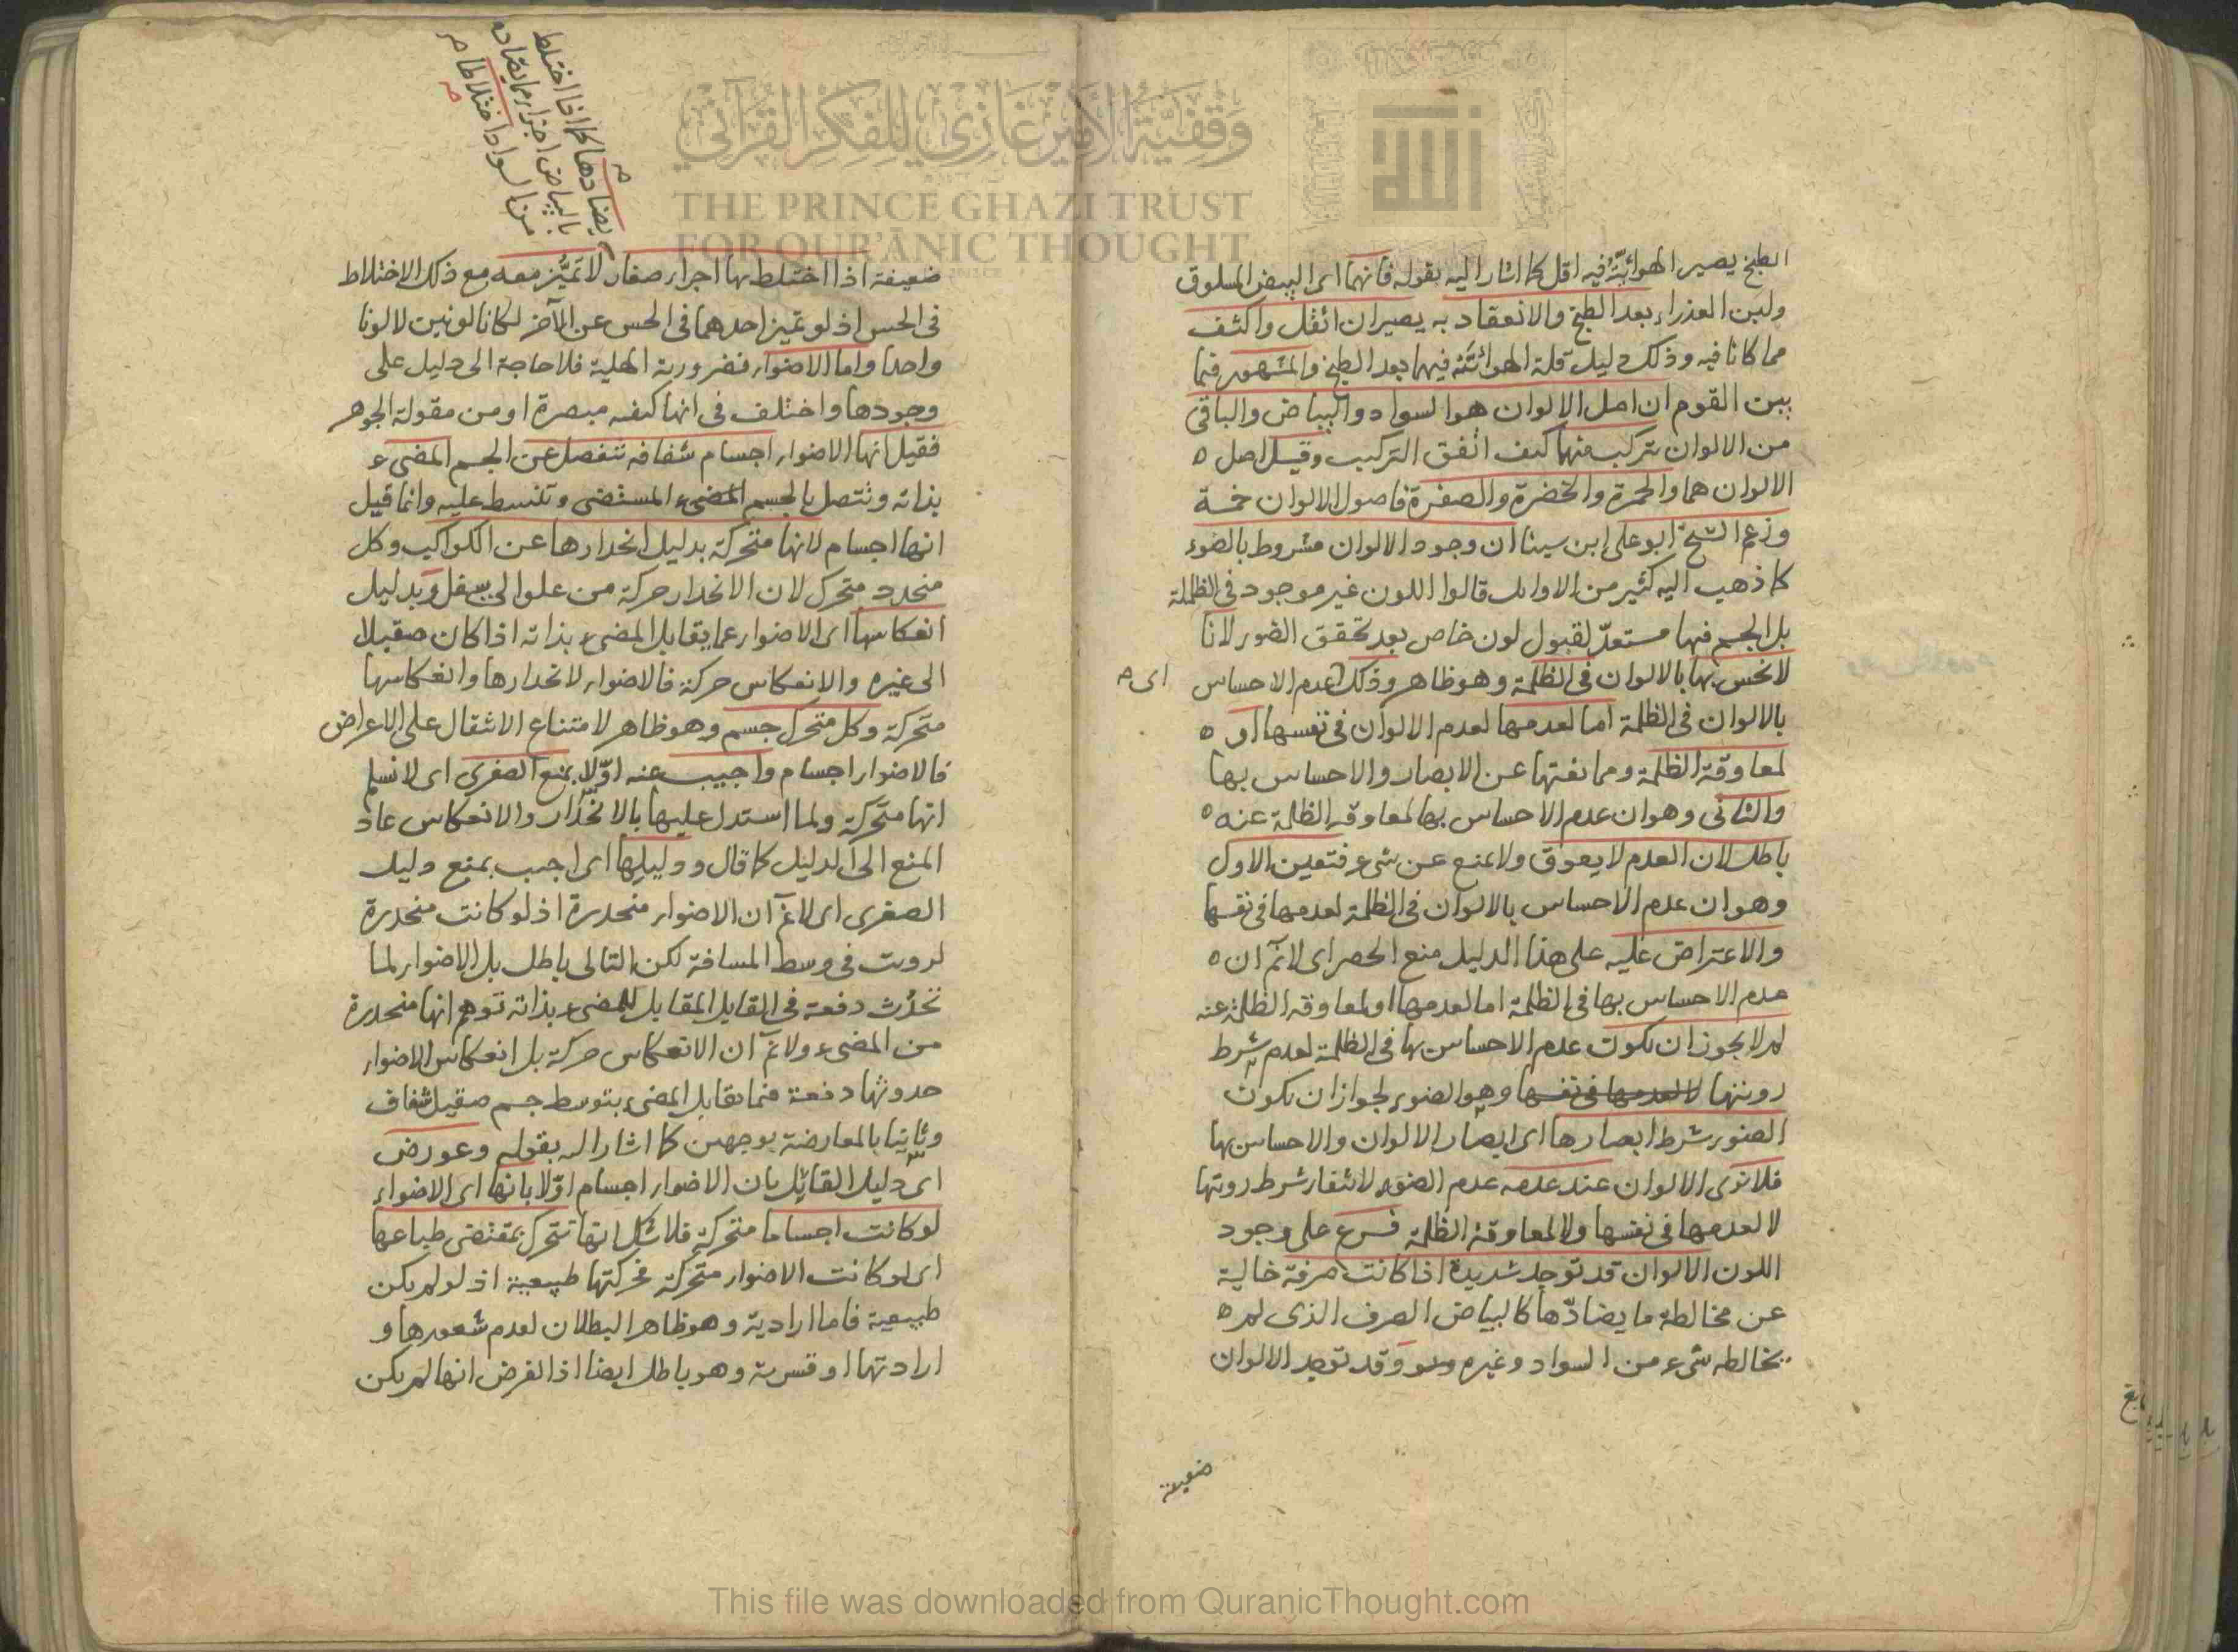 الطبخ يصير الهوائيّة فيه اقل كما اشار اليه بقوله فانهما اى البيض المسلوق
ولبن العذراء بعد الطبخ والانعقاد به يصيران اثقل واكثف
مما كانا فيه وذلك دليل قلة الهوائية فيهما بعد الطبخ والمشهور فيما
بين القوم ان اصل الالوان هو السواد والبياض والباقى
من الالوان يتركب منهما كيف اتفق التركيب وقيل اصل ه
الالوان هما والحمرة والخضرة والصفرة فاصول الالوان خمسة
وزعم الشيخ ابو على ابن سينا ان وجود الالوان مشروط بالضوء
كما ذهب اليه كثير من الاوائل قالوا اللون غير موجود فى الظلمة
بل الجسم فيها مستعدّ لقبول لون خاص بعد تحقق الضوء لانا
لا نحس بها بالالوان فى الظلمة وهو ظاهر وذلك عدم الاحساس
اى
بالالوان فى الظلمة اما لعدمها لعدم الالوان فى نفسها او ه
لمعاوقة الظلمة وممانعتها عن الابصار والاحساس بها
والثانى وهو ان عدم الاحساس بها لمعاوقة الظلمة عنه ه
باطل لان العدم لا يعوق ولا يمنع عن شىء فتعين الاول
وهو ان عدم الاحساس بالالوان فى الظلمة لعدمها فى نفسها
والاعتراض عليه على هذا الدليل منع الحصر اى لانم ان ه
عدم الاحساس بها فى الظلمة اما لعدمها او لمعاوقة الظلمة عنه
لم لا يجوز ان يكون عدم الاحساس بها فى الظلمة لعدم شرط
رويتها لا لعدمها فى نفسها وهو الضوء لجواز ان يكون
الضوء شرط ابصارها اى ابصار الالوان والاحساس بها
فلا نرى الالوان عند عدمه عدم الضوء لانتفاء شرط رويتها
لا لعدمها فى نفسها ولا لمعاوقة الظلمة فرع على وجود
اللون الالوان قد توجد شديدة اذا كانت صرفة خالية
عن مخالطة ما يضادّها كالبياض الصرف الذى لم ه
يخالطه شىء من السواد وغيره وقد توجد الالوان
ضعيفة
يضادها كما اذا اختلط
بالبياض اجزاء مما يضاده
من السواد اختلاطا
ضعيفة اذا اختلط بها اجزاء صغار لا تميّز معه مع ذلك الاختلاط
فى الحس اذ لو تميز احدهما فى الحس عن الآخر لكانا لونين لا لونا
واحدا واما الاضواء فضرورية الهلية فلا حاجة الى دليل على
وجودها واختلف فى انها كيفية مبصرة او من مقولة الجوهر
فقيل انها الاضواء اجسام شفافة تنفصل عن الجسم المضىء
بذاته وتتصل بالجسم المضىء المستضى وتنبسط عليه وانما قيل
انها اجسام لانها متحركة بدليل انحدارها عن الكواكب وكل
منحدر متحرك لان الانحدار حركة من علو الى سفل وبدليل
انعكاسها اى الاضواء عما يقابل المضىء بذاته اذا كان صقيلا
الى غيره والانعكاس حركة فالاضواء لانحدارها وانعكاسها
متحركة وكل متحرك جسم وهو ظاهر لامتناع الانتقال على الاعراض
فالاضواء اجسام واجيب عنه اوّلا بمنع الصغرى اى لا نسلم
انها متحركة ولما استدل عليها بالانحدار والانعكاس عاد
المنع الى الدليل كما قال ودليلها اى اجيب بمنع دليل
الصغرى اى لانم ان الاضواء منحدرة اذ لو كانت منحدرة
لرويت فى وسط المسافة لكن التالى باطل بل الاضواء لما
تحدث دفعة فى القابل المقابل للمضىء بذاته توهم انها منحدرة
من المضىء ولانم ان الانعكاس حركة بل انعكاس الاضواء
حدوثها دفعة فيما يقابل المضىء بتوسط جسم صقيل شفاف
وثانيا بالمعارضة بوجهين كما اشار اليه بقوله وعورض
اى دليل القائل بان الاضواء اجسام اوّلا بانها اى الاضواء
لو كانت اجساما متحركة فلا شك انها تتحرك بمقتضى طباعها
اى لو كانت الاضواء متحركة فحركتها طبيعية اذ لو لم يكن
طبيعية فاما ارادية وهو ظاهر البطلان لعدم شعورها و
ارادتها او قسرية وهو باطل ايضا اذ الفرض انها لم يكن
وقفية الأمير غازي للفكر القرآني
THE PRINCE GHAZI TRUST
FOR QUR'ĀNIC THOUGHT
الله
This file was downloaded from QuranicThought.com